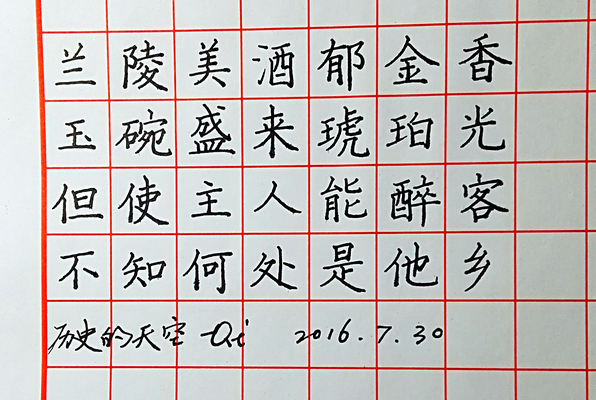 兰陵美酒郁金香
玉碗盛来琥珀光
但使主人能醉客
不知何处是他乡
历史的天空-Qi 2016.7.30